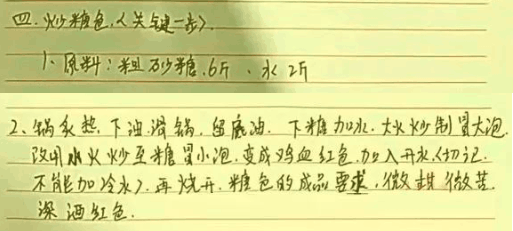 四.炒糖色.<关键一步>.
1、原料:粗砂糖.6斤、水2斤
2、锅炙热.下油滑锅.留底油.下糖加水.大火炒制冒大泡.
改用小火炒至糖冒小泡.变成鸡血红色.加入开水.(切记.
不能加冷水).再烧开.糖色的成品要求.微甜微苦.
深酒红色.